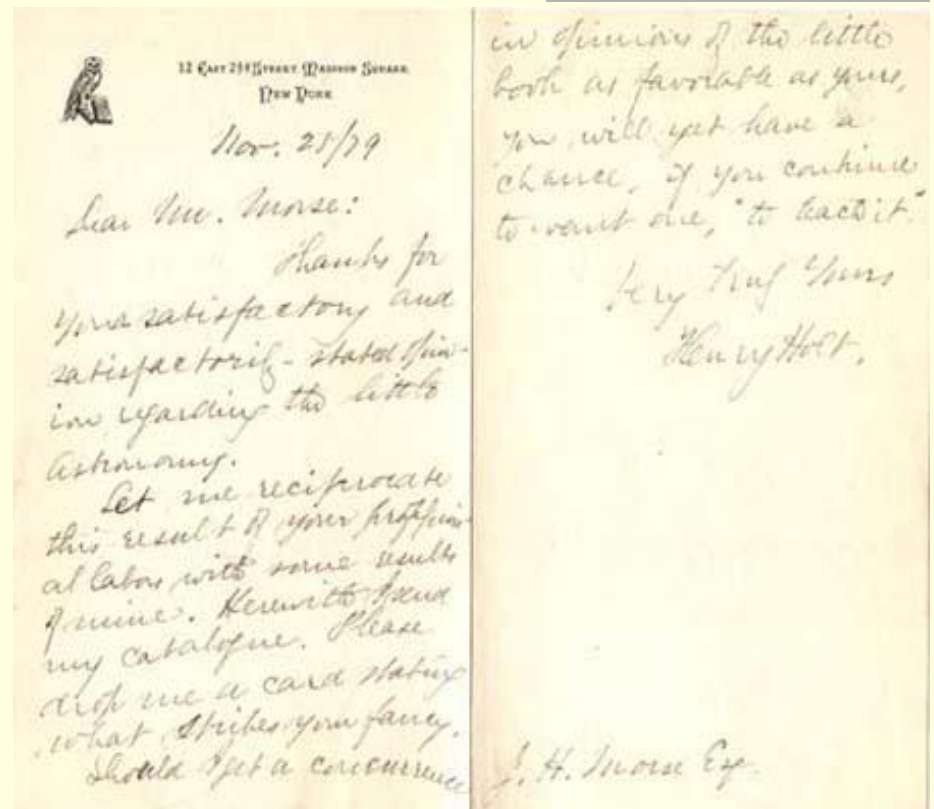 12 East 23d Street, Madison Square,
New York
Nov. 25/79
Dear Mr. Morse:
Thanks for
your satisfactory and
satisfactorily-stated opin-
ion regarding the little
Astronomy.
Let me reciprocate
this result of your profession-
al labors with some results
of mine. Herewith I send
my catalogue. Please
drop me a card stating
what strikes your fancy.
Should I get a concurrence
in opinions of the little
book as favorable as yours,
you will yet have a
chance, if you continue
to want one, "to teach it."
Very Truly Yours
Henry Holt.
J. H. Morse Esq.